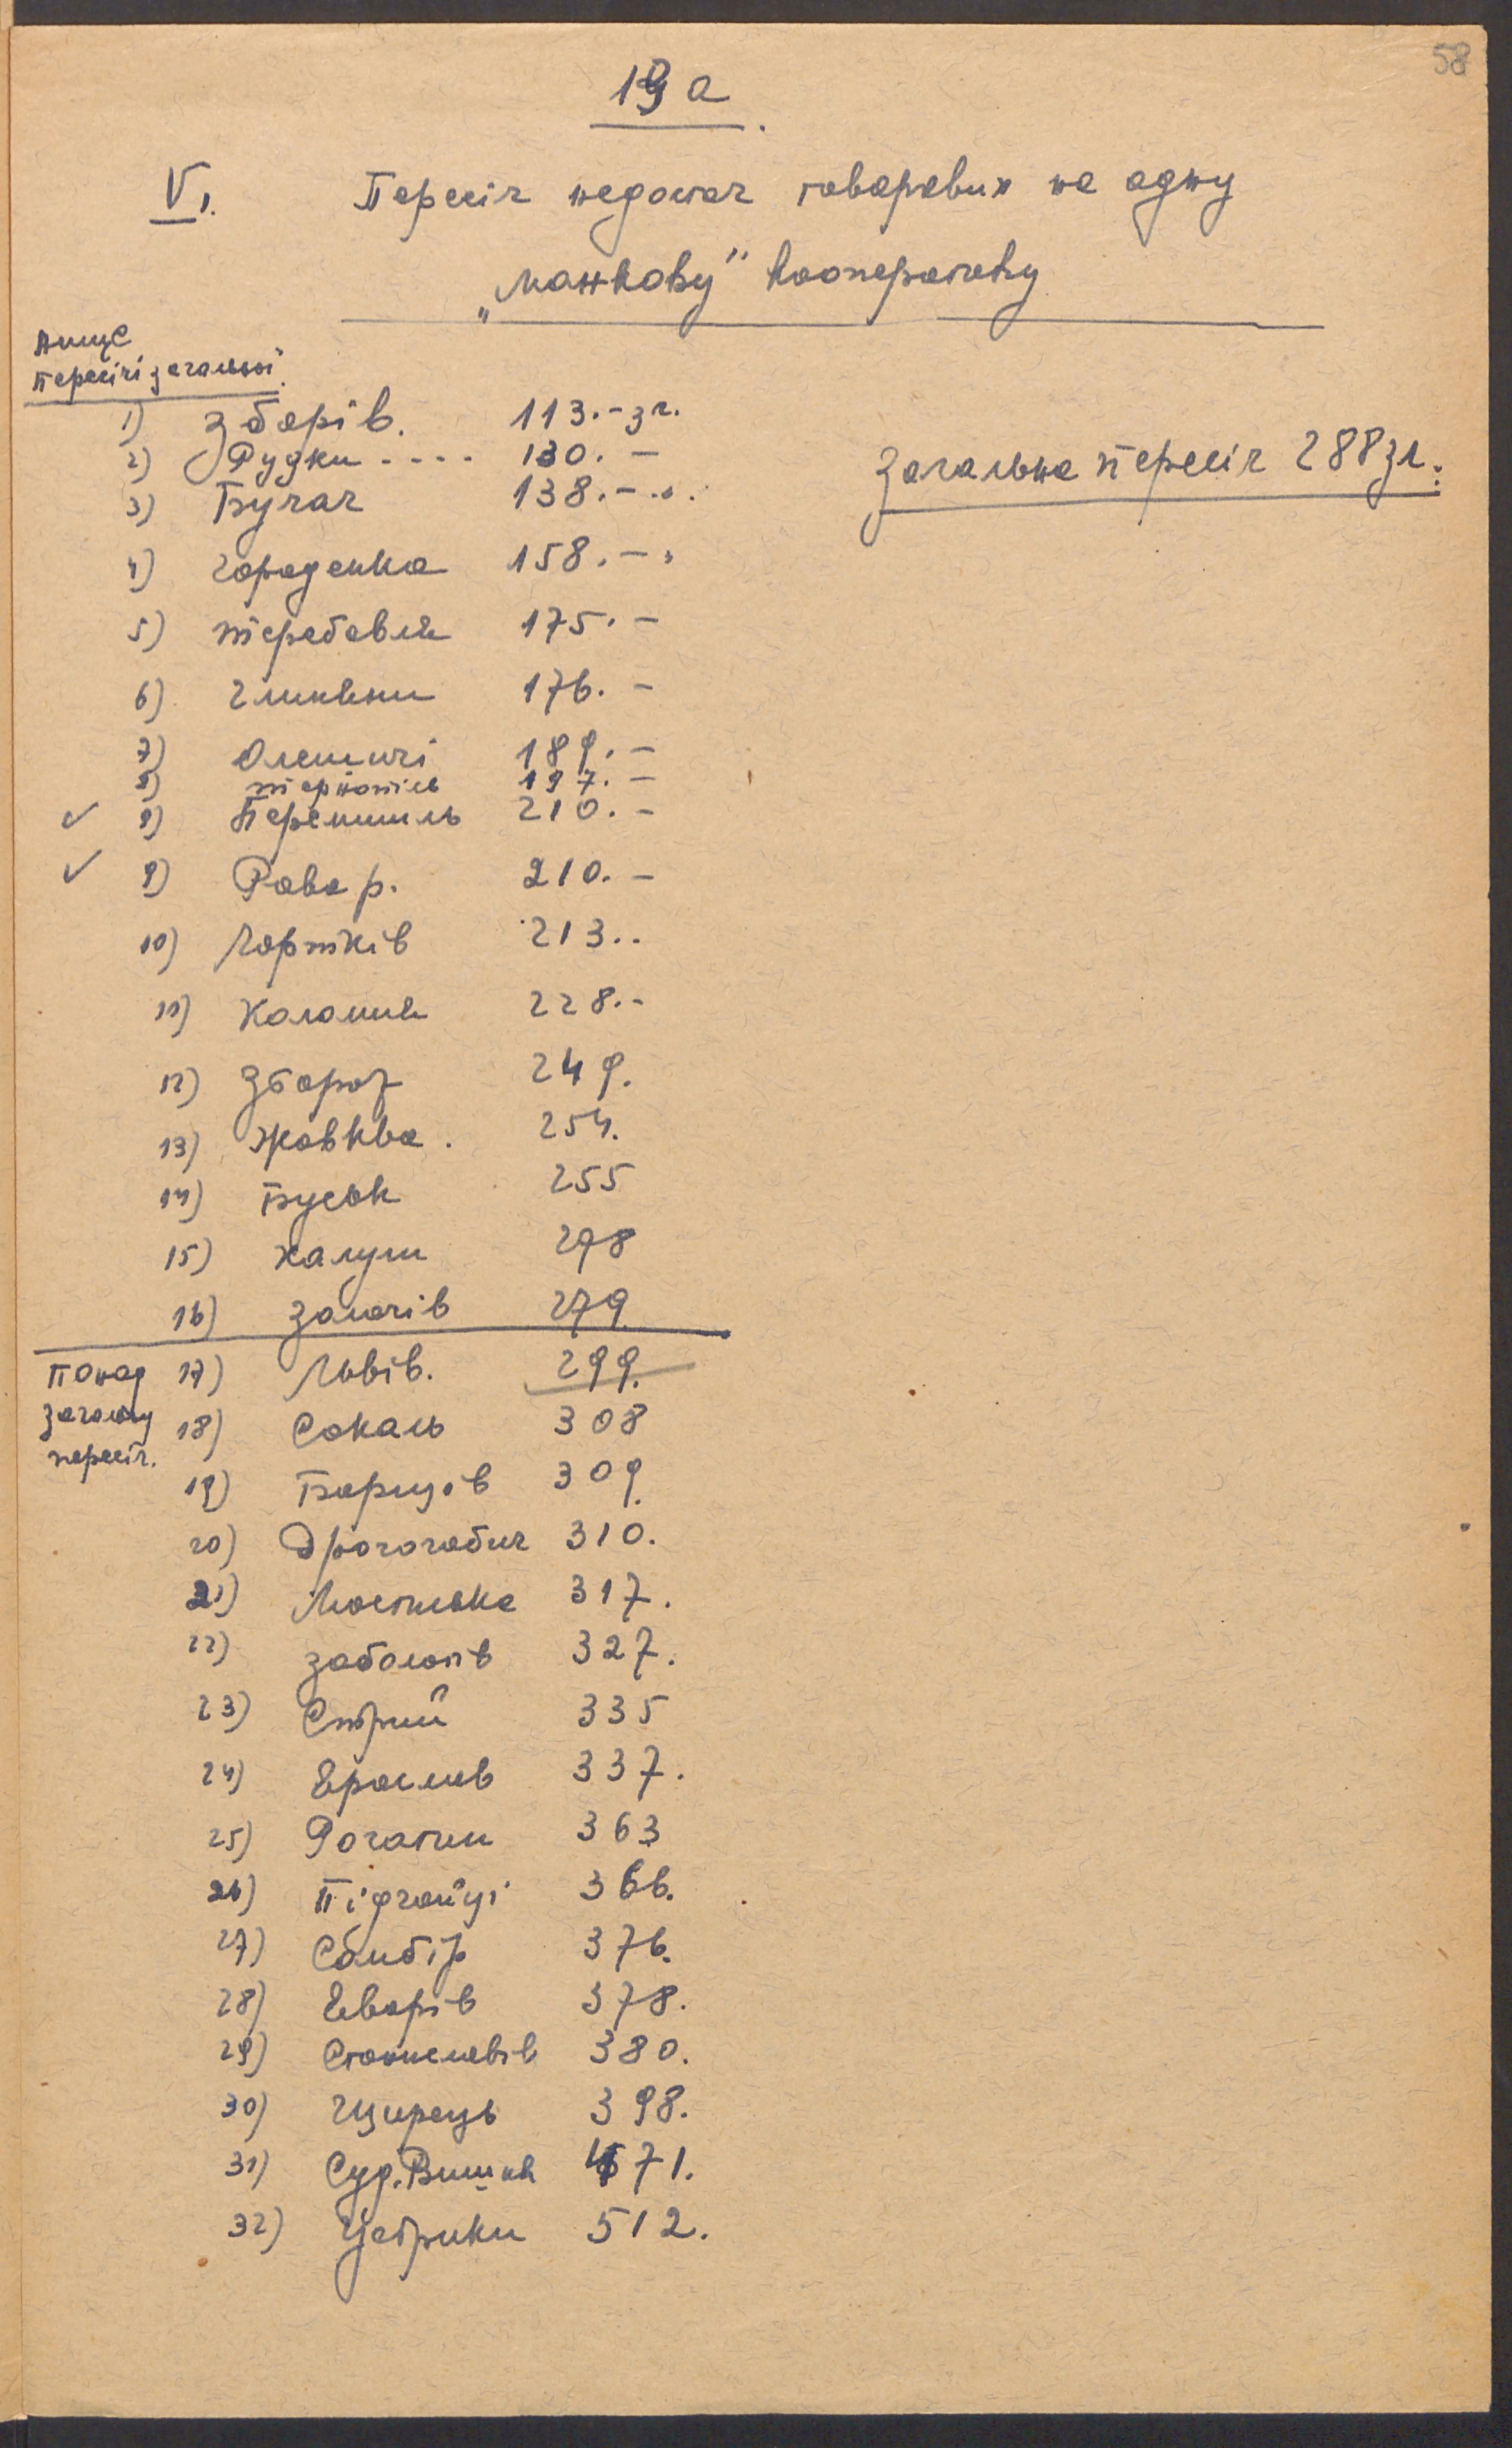 58
19 а
V.
Пересіч недостач товарових на одну
„манкову" кооперативу
нище
пересічі загальної
1) Зборів. 113.- зл.
2) Рудки .... 130. -
3) Бучач 138. - ..
Загальна пересіч 288 зл.
4) Городенка 158. - "
5) Теребовля 175. -
6) Глиняни 176. -
7) Олешичі 189. -
8) Тернопіль 197. -
✓ 9) Перемишль 210. -
✓ 9) Рава р. 210. -
10) Чортків 213..
11) Коломия 228.-
12) Збараж 249.
13) Жовква. 254.
14) Буськ 255
15) Калуш 278
16) Золочів 279
Понад 17) Львів. 299.
загальну 18) Сокаль 308
пересіч. 19) Борщів 309
20) Дрогогобич 310.
21) Мостиська 317.
22) Заболотів 327.
23) Стрий 335
24) Ярослав 337.
25) Рогатин 363
26) Підгайці 366.
27) Самбір 376.
28) Яворів 378.
29) Станиславів 380.
30) Щирець 398.
31) Суд. Вишня 471.
32) Устрики 512.